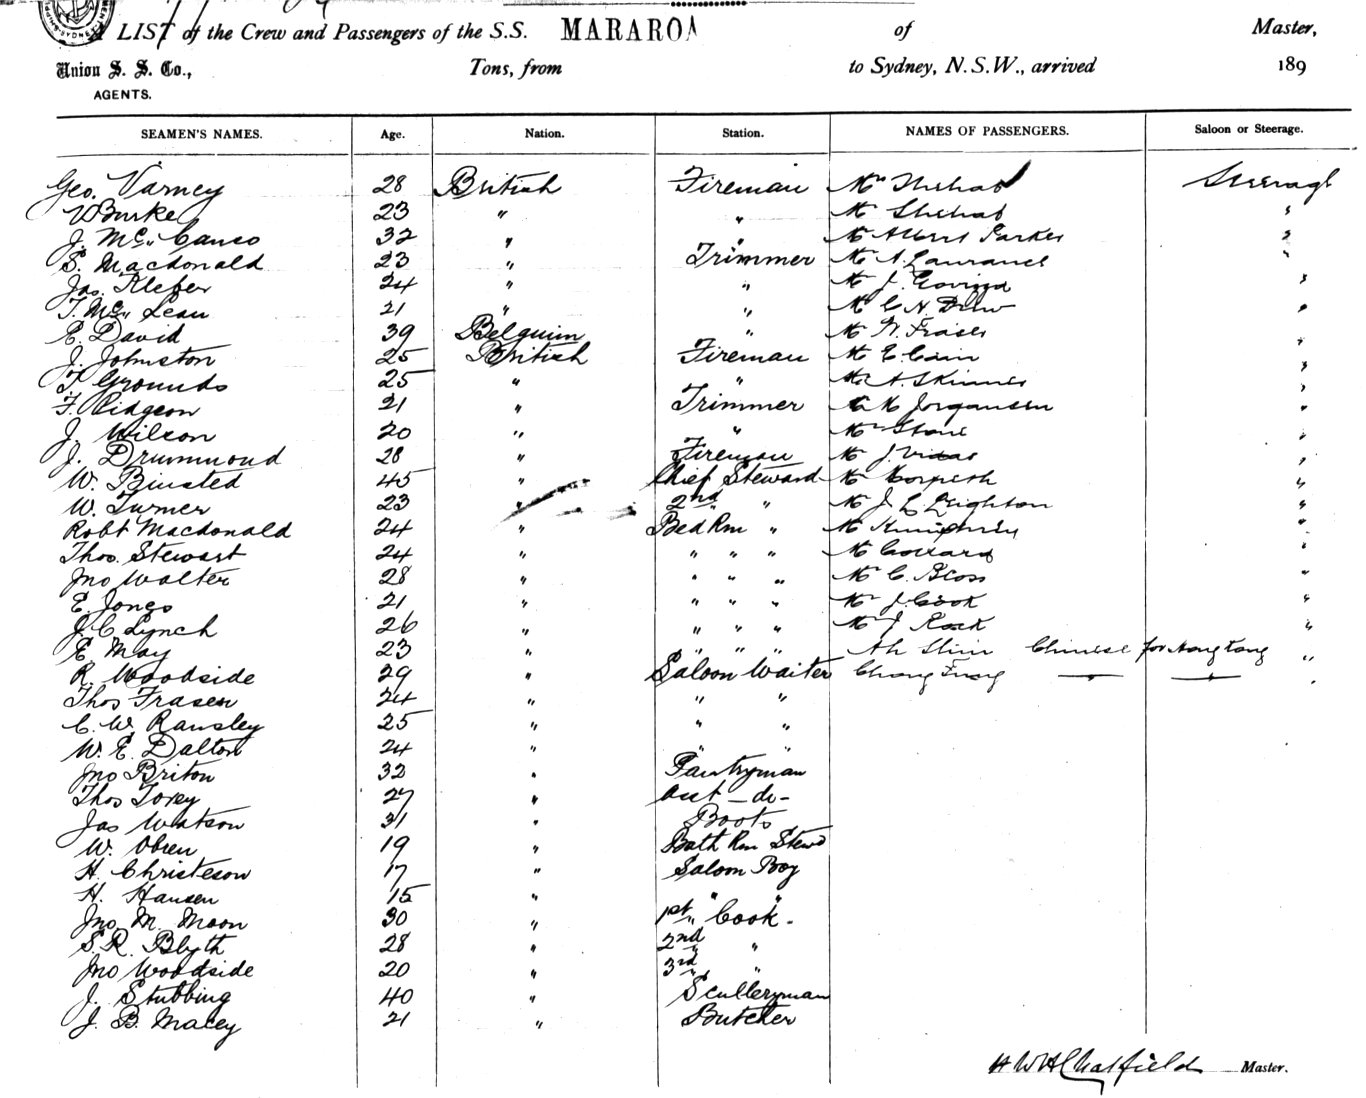 A LIST of the Crew and Passengers of the S.S. MARAROA of Master,
Union S. S. Co., Tons, from to Sydney, N.S.W., arrived 189
AGENTS.
SEAMEN'S NAMES. Age. Nation. Station. NAMES OF PASSENGERS. Saloon or Steerage.
Geo. Varney 28 British Fireman Mrs Shehab Steerage
W Burke 23 " " Mr Shehab "
J. Mc. Canso 32 " " Mr Albert Parker "
S. Macdonald 23 " Trimmer Mr A. Lawrance "
Jas. Klefer 24 " " Mr J. "
T. Mc" Lean 21 " " Mr C. H. Drew "
E. David 39 Belguim " Mr Fraser "
J. Johnston 25 British Fireman Mr E. Cain "
T. Grounds 25 " " Mr A. Skinner "
F. Pidgeon 21 " Trimmer Mr Jorgansen "
J. Wilson 20 " " Mr Stone "
J. Drummond 28 " Fireman Mr J. "
W. Binsted 45 " Chief Steward Mr Morpeth "
W. Turner 23 " 2nd " Mr J. L. Leighton "
Robt Macdonald 24 " Bed Rm " Mr "
Thos. Stewart 24 " " " " Mr "
Jno Walter 28 " " " " Mr C. Bloss "
E. Jones 21 " " " " Mr J. Cook "
J. C. Lynch 26 " " " " Mr J. Rock "
E. May 23 " " " " Ah Chinese for Hong Kong "
R. Woodside 29 " Saloon Waiter Chong Fung — — "
Thos Fraser 24 " " "
C. W. Ransley 25 " " "
W. E. Dalton 24 " " "
Jno Briton 32 " Pantryman
Thos Torey 27 " Ast - do -
Jas Watson 31 " Boots
W. Obren 19 " Bath Rm Stewd
H. Christeson 17 " Saloon Boy
H. Hansen 15 " " "
Jno. M. Moon 30 " 1st Cook -
S. R. Blyth 28 " 2nd "
Jno Woodside 20 " 3rd "
J. Stubbing 40 " Sculleryman
J. B. Macey 21 " Butcher
H W H Chatfield Master.